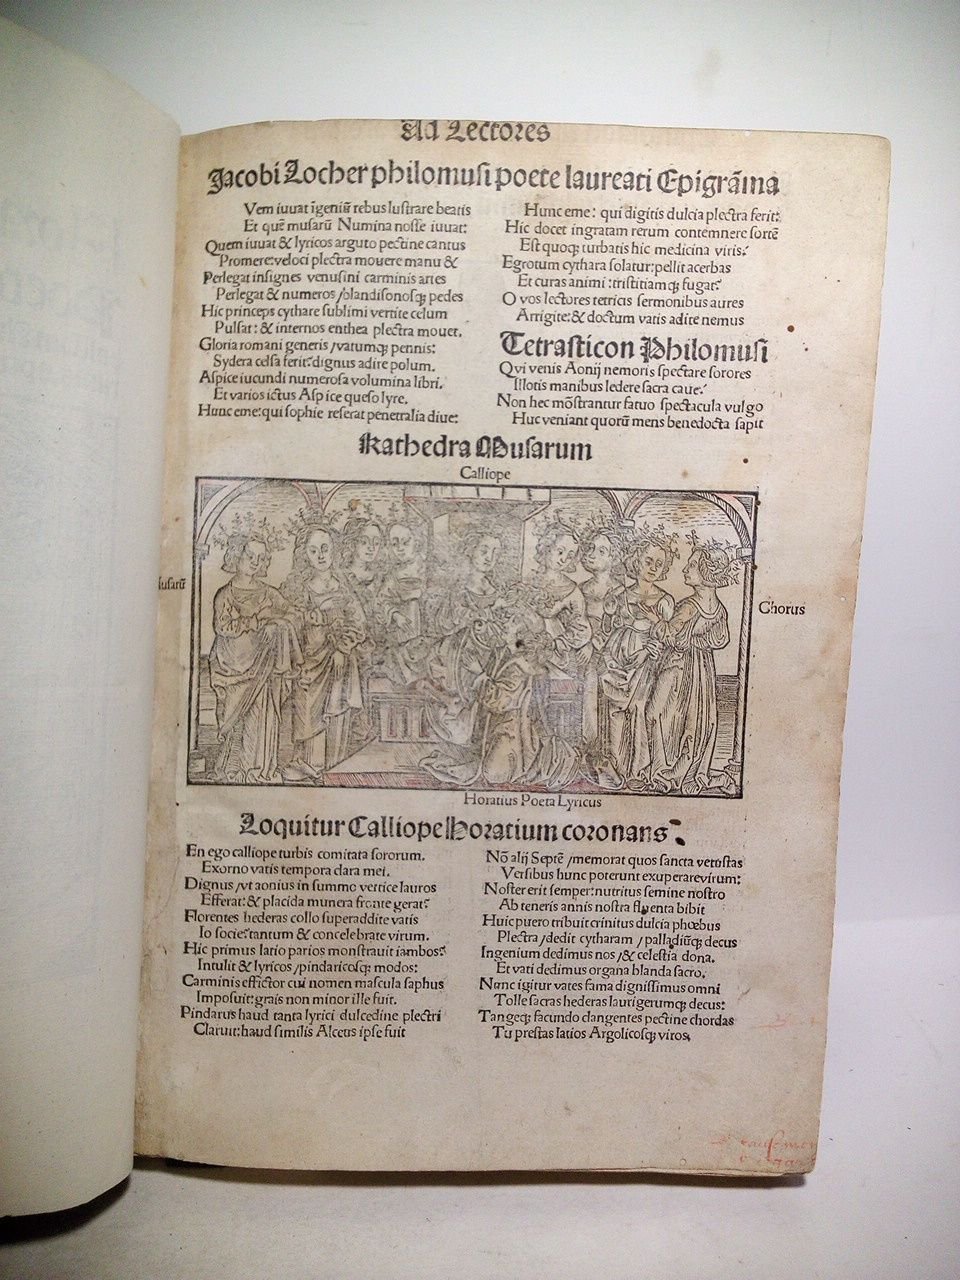 Ad Lectores
Jacobi Locher philomusi poete laureati Epigrāma
Vem iuuat īgeniū rebus lustrare beatis
Et quē musarū Numina nosse iuuat:
Quem iuuat & lyricos arguto pectine cantus
Promere: veloci plectra mouere manu &
Perlegat insignes venusini carminis artes
Perlegat & numeros /blandisonosq; pedes
Hic princeps cythare sublimi vertite celum
Pulsat: & internos enthea plectra mouet.
Gloria romani generis /vatumq; pennis:
Sydera celsa ferit: dignus adire polum.
Aspice iucundi numerosa volumina libri.
Et varios ictus Aspice queso lyre.
Hunc eme: qui sophie reserat penetralia diue:
Hunc eme: qui digitis dulcia plectra ferit:
Hic docet ingratam rerum contemnere sortē
Est quoq; turbatis hic medicina viris:
Egrotum cythara solatur: pellit acerbas
Et curas animi: tristitiamq; fugat:
O vos lectores tetricis sermonibus aures
Arrigite: & doctum vatis adite nemus
Tetrasticon Philomusi
Qvi venis Aonij nemoris spectare sorores
Illotis manibus ledere sacra caue:
Non hec mōstrantur fatuo spectacula vulgo
Huc veniant quorū mens benedocta sapit
Kathedra Musarum
Calliope
usarū
Chorus
Horatius Poeta Lyricus
Loquitur Calliope Horatium coronans:
En ego calliope turbis comitata sororum.
Exorno vatis tempora clara mei.
Dignus /vt aonius in summo vertice lauros
Efferat: & placida munera fronte gerat:
Florentes hederas collo superaddite vatis
Io socie: tantum & concelebrate virum.
Hic primus latio parios monstrauit iambos:
Intulit & lyricos /pindaricosq; modos:
Carminis effictor cui nomen mascula saphus
Imposuit: grais non minor ille fuit.
Pindarus haud tanta lyrici dulcedine plectri
Claruit: haud similis Alceus ipse fuit
Nō alij Septē /memorat quos sancta vetustas
Versibus hunc poterunt exuperare virum:
Noster erit semper: nutritus semine nostro
Ab teneris annis nostra fluenta bibit
Huic puero tribuit crinitus dulcia phœbus
Plectra /dedit cytharam /palladiūq; decus
Ingenium dedimus nos /& celestia dona.
Et vati dedimus organa blanda sacro.
Nunc igitur vates fama dignissimus omni
Tolle sacras hederas laurigerumq; decus:
Tangeq; facundo clangentes pectine chordas
Tu prestas latios Argolicosq; viros.